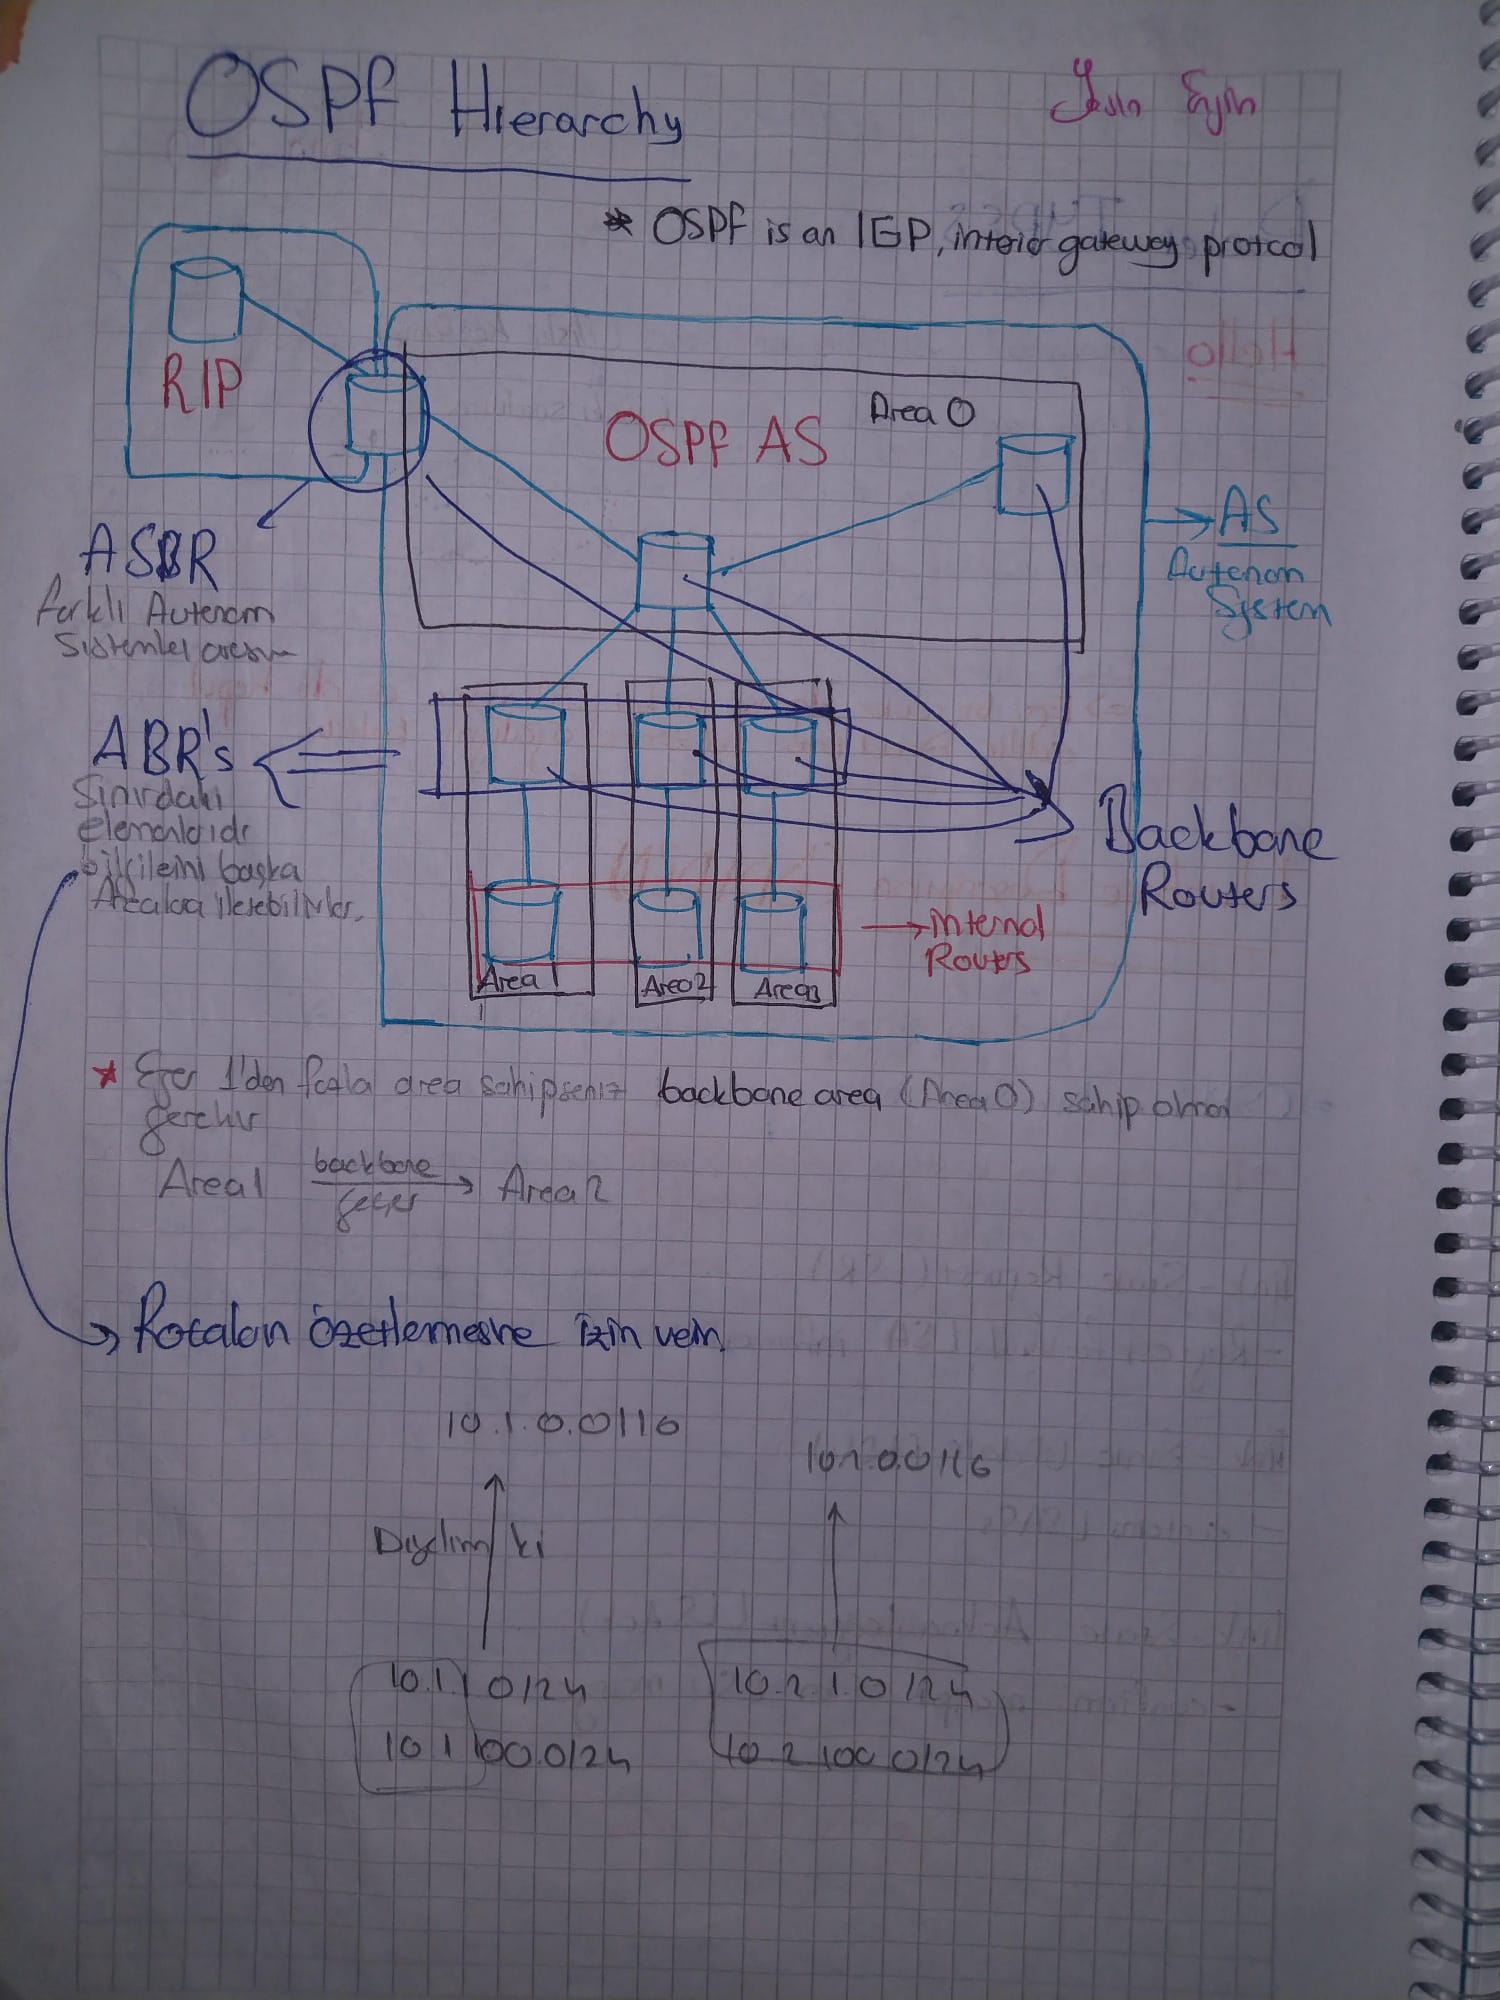 OSPF Hierarchy
* OSPF is an IGP, interior gateway protcol
RIP
OSPF AS
Area 0
AS
Autonom
System
ASBR
farklı Autonom
Sistemler arası
ABR's
Sınırdaki
elemanlardır
bilgilerini başka
Arealara iletebilirler.
Backbone
Routers
internal
Routers
Area 1
Area 2
Area 3
* Eğer 1'den fazla area sahipseniz backbone area (Area 0) sahip olmanız
gerekir
Area 1 backbone geçer Area 2
Rotaların özetlemesine izin verin
10.1.0.0/16
10.2.0.0/16
Diyelim ki
10.1.1.0/24
10.2.1.0/24
10.1.100.0/24
10.2.100.0/24